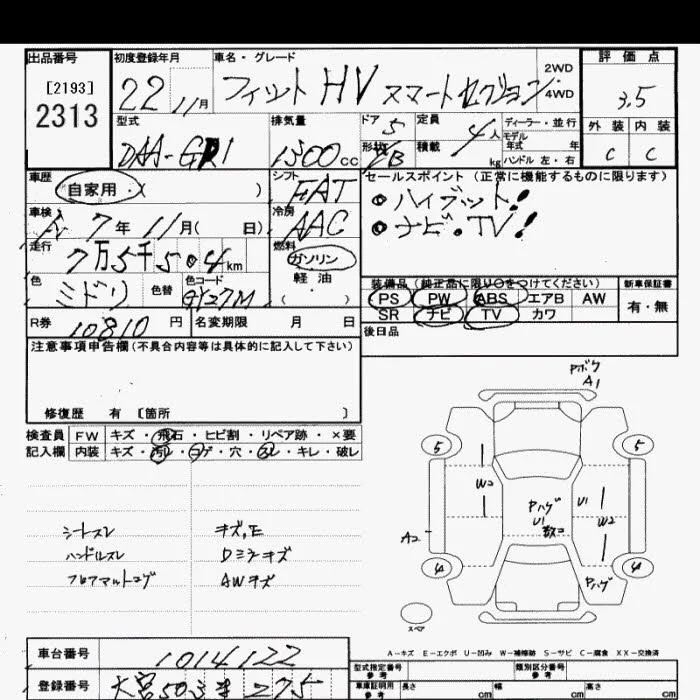 出品番号
[2193]
2313
初度登録年月
22 11月
車名・グレード
フィットHV スマートセレクション
2WD
4WD
評価点
3.5
外装 内装
C C
型式
DAA-GP1
排気量
1500cc
ドア 5
形状 CB
定員 人
積載 kg
ディーラー・並行
モデル
年式 年
ハンドル 左・右
車歴
自家用・( )
シフト
FAT
セールスポイント (正常に機能するものに限ります)
ハイブット!
ナビ・TV!
車検
7年11月( 日)
冷房
AAC
走行
7万5千504km
燃料
ガソリン
軽油
( )
色
ミドリ
色替
色コード
GY27M
装備品 (純正品に限り○をつけてください)
PS PW ABS エアB AW
SR ナビ TV カワ
新車保証書
有・無
R券
10810円
名変期限 月 日
後日品
注意事項申告欄(不具合内容等は具体的に記入して下さい)
修復歴 有 [箇所 ]
検査員
記入欄
FW キズ・飛石・ヒビ割・リペア跡・×要
内装 キズ・汚レ・コゲ・穴・スレ・キレ・破レ
シートスレ
ハンドルスレ
フロアマットコゲ
キズ,E
Dミラーキズ
AWキズ
Pボケ
A1
5
5
W2
Pハゲ
U1
数コ
U1
W2
A2
4
4
Pハゲ
スペア
A-キズ E-エクボ U-凹み W-補修跡 S-サビ C-腐食 XX-交換済
車台番号
1014122
登録番号
大宮503 275
型式指定番号
参考
類別区分番号
参考
車庫証明用
参考
長さ cm
幅 cm
高さ cm